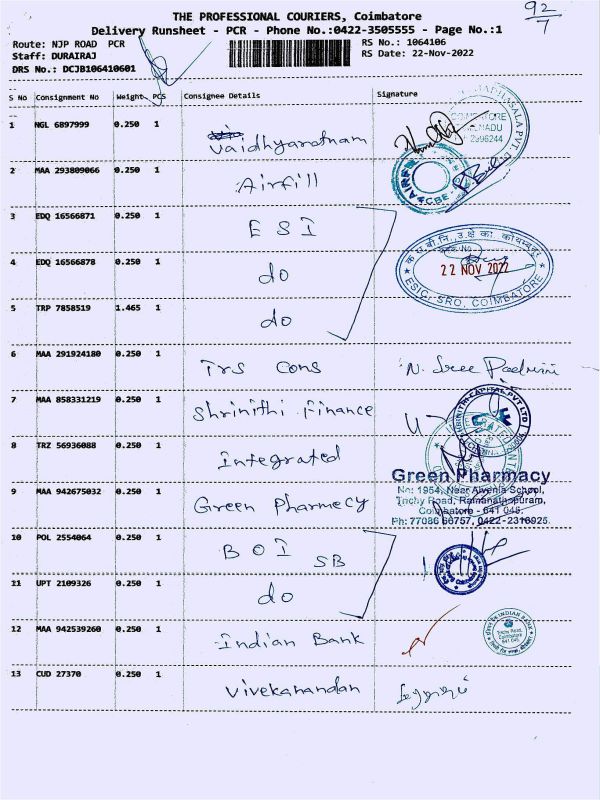 92/7
THE PROFESSIONAL COURIERS, Coimbatore
Delivery Runsheet - PCR - Phone No.:0422-3505555 - Page No.:1
Route: NJP ROAD PCR
RS No.: 1064106
Staff: DURAIRAJ
RS Date: 22-Nov-2022
DRS No.: DCJB106410601
S No Consignment No Weight PCS Consignee Details Signature
1 NGL 6897999 0.250 1 Vaidhyaratnam
2 MAA 293809066 0.250 1 Airfill
3 EDQ 16566871 0.250 1 ESI
4 EDQ 16566878 0.250 1 do
22 NOV 2022
ESIC, SRO, COIMBATORE
5 TRP 7858519 1.465 1 do
6 MAA 291924180 0.250 1 Trs Cons N. Sree Padmini
7 MAA 858331219 0.250 1 Shrinithi Finance
8 TRZ 56936088 0.250 1 Integrated
Green Pharmacy
No: 1954, Near Alvenia School,
Trichy Road, Ramanathapuram,
Coimbatore - 641 045.
Ph: 77086 66757, 0422-2316925.
9 MAA 942675032 0.250 1 Green Pharmecy
10 POL 2554064 0.250 1 BOI SB
11 UPT 2109326 0.250 1 do
12 MAA 942539260 0.250 1 Indian Bank
INDIAN BANK
Trichy Road,
Coimbatore
641 045
13 CUD 27370 0.250 1 Vivekanandan